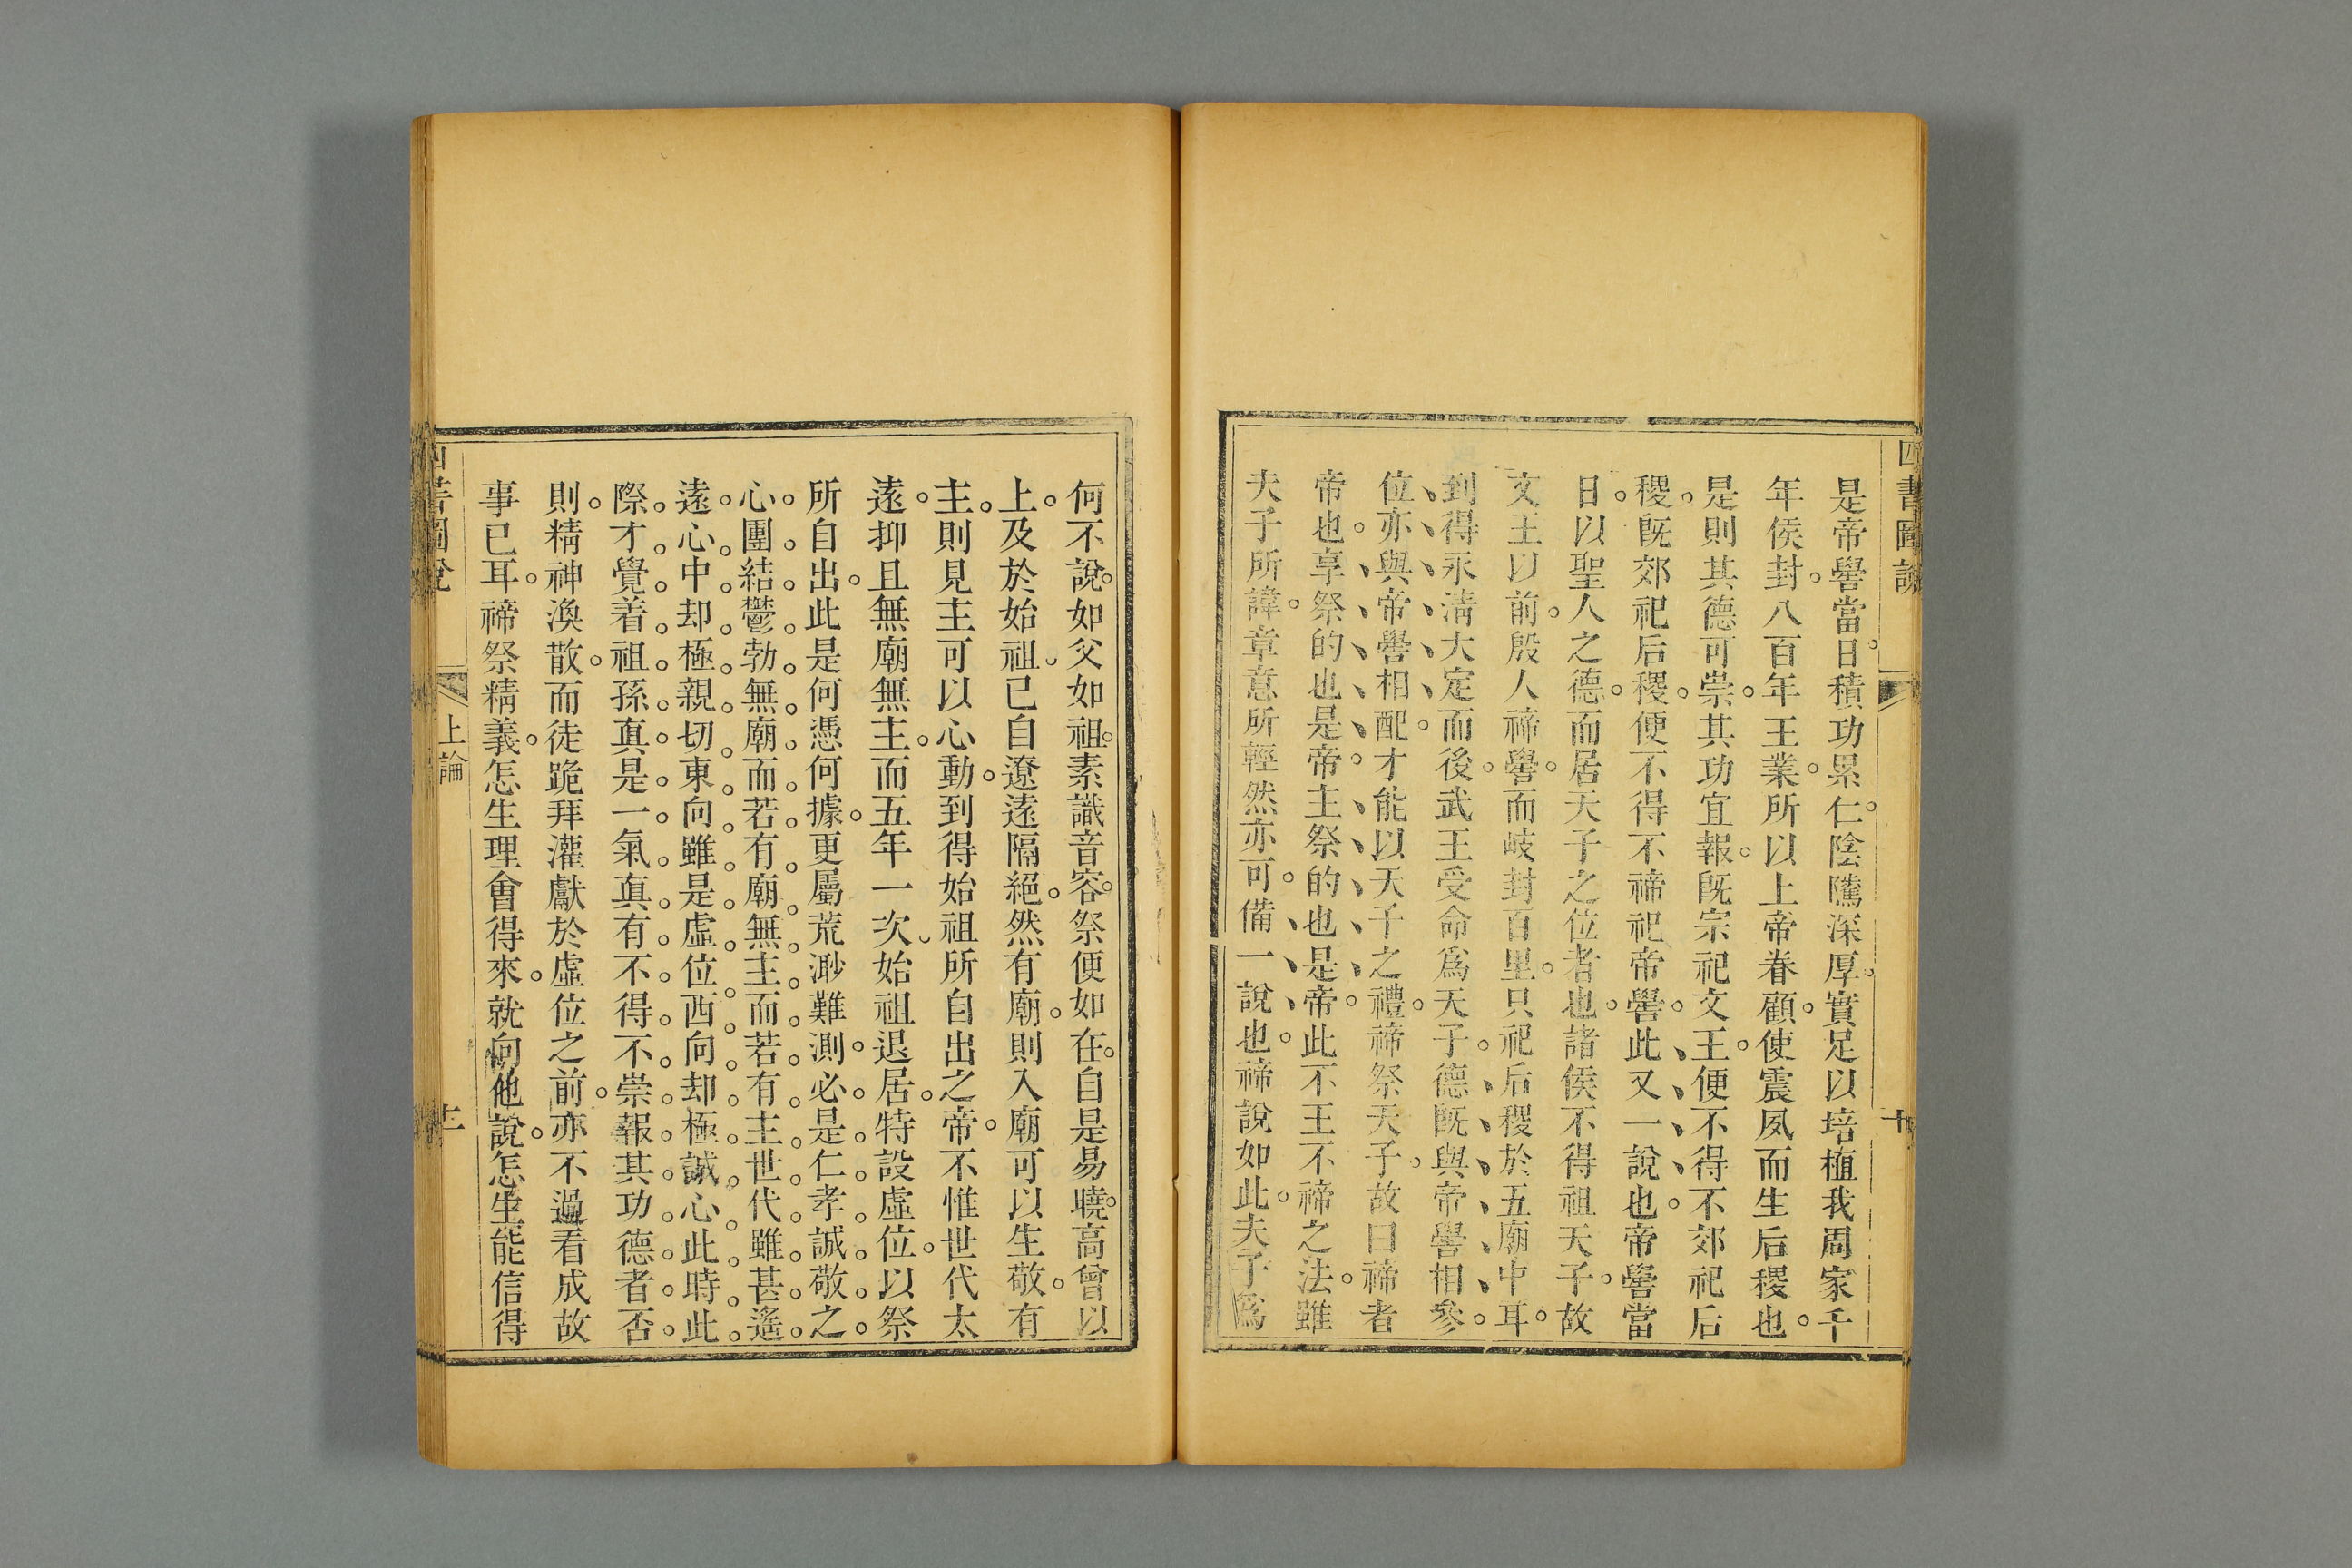 四書圖說
十
是帝嚳當日積功累仁陰騭深厚實足以培植我周家千
年侯封八百年王業所以上帝眷顧使震夙而生后稷也
是則其德可崇其功宜報旣宗祀文王便不得不郊祀后
稷旣郊祀后稷便不得不禘祀帝嚳此又一說也帝嚳當
日以聖人之德而居天子之位者也諸侯不得祖天子故
文王以前殷人禘嚳而岐封百里只祀后稷於五廟中耳
到得永淸大定而後武王受命爲天子德旣與帝嚳相參
位亦與帝嚳相配才能以天子之禮禘祭天子故曰禘者
帝也享祭的也是帝主祭的也是帝此不王不禘之法雖
夫子所諱章意所輕然亦可備一說也禘說如此夫子爲
何不說如父如祖素識音容祭便如在自是易曉高曾以
上及於始祖已自遼遠隔絕然有廟則入廟可以生敬有
主則見主可以心動到得始祖所自出之帝不惟世代太
遠抑且無廟無主而五年一次始祖退居特設虛位以祭
所自出此是何憑何據更屬荒渺難測必是仁孝誠敬之
心團結鬱勃無廟而若有廟無主而若有主世代雖甚遙
遠心中却極親切東向雖是虛位西向却極誠心此時此
際才覺着祖孫眞是一氣眞有不得不崇報其功德者否
則精神渙散而徒跪拜灌獻於虛位之前亦不過看成故
事已耳禘祭精義怎生理會得來就向他說怎生能信得
四書圖說
上論